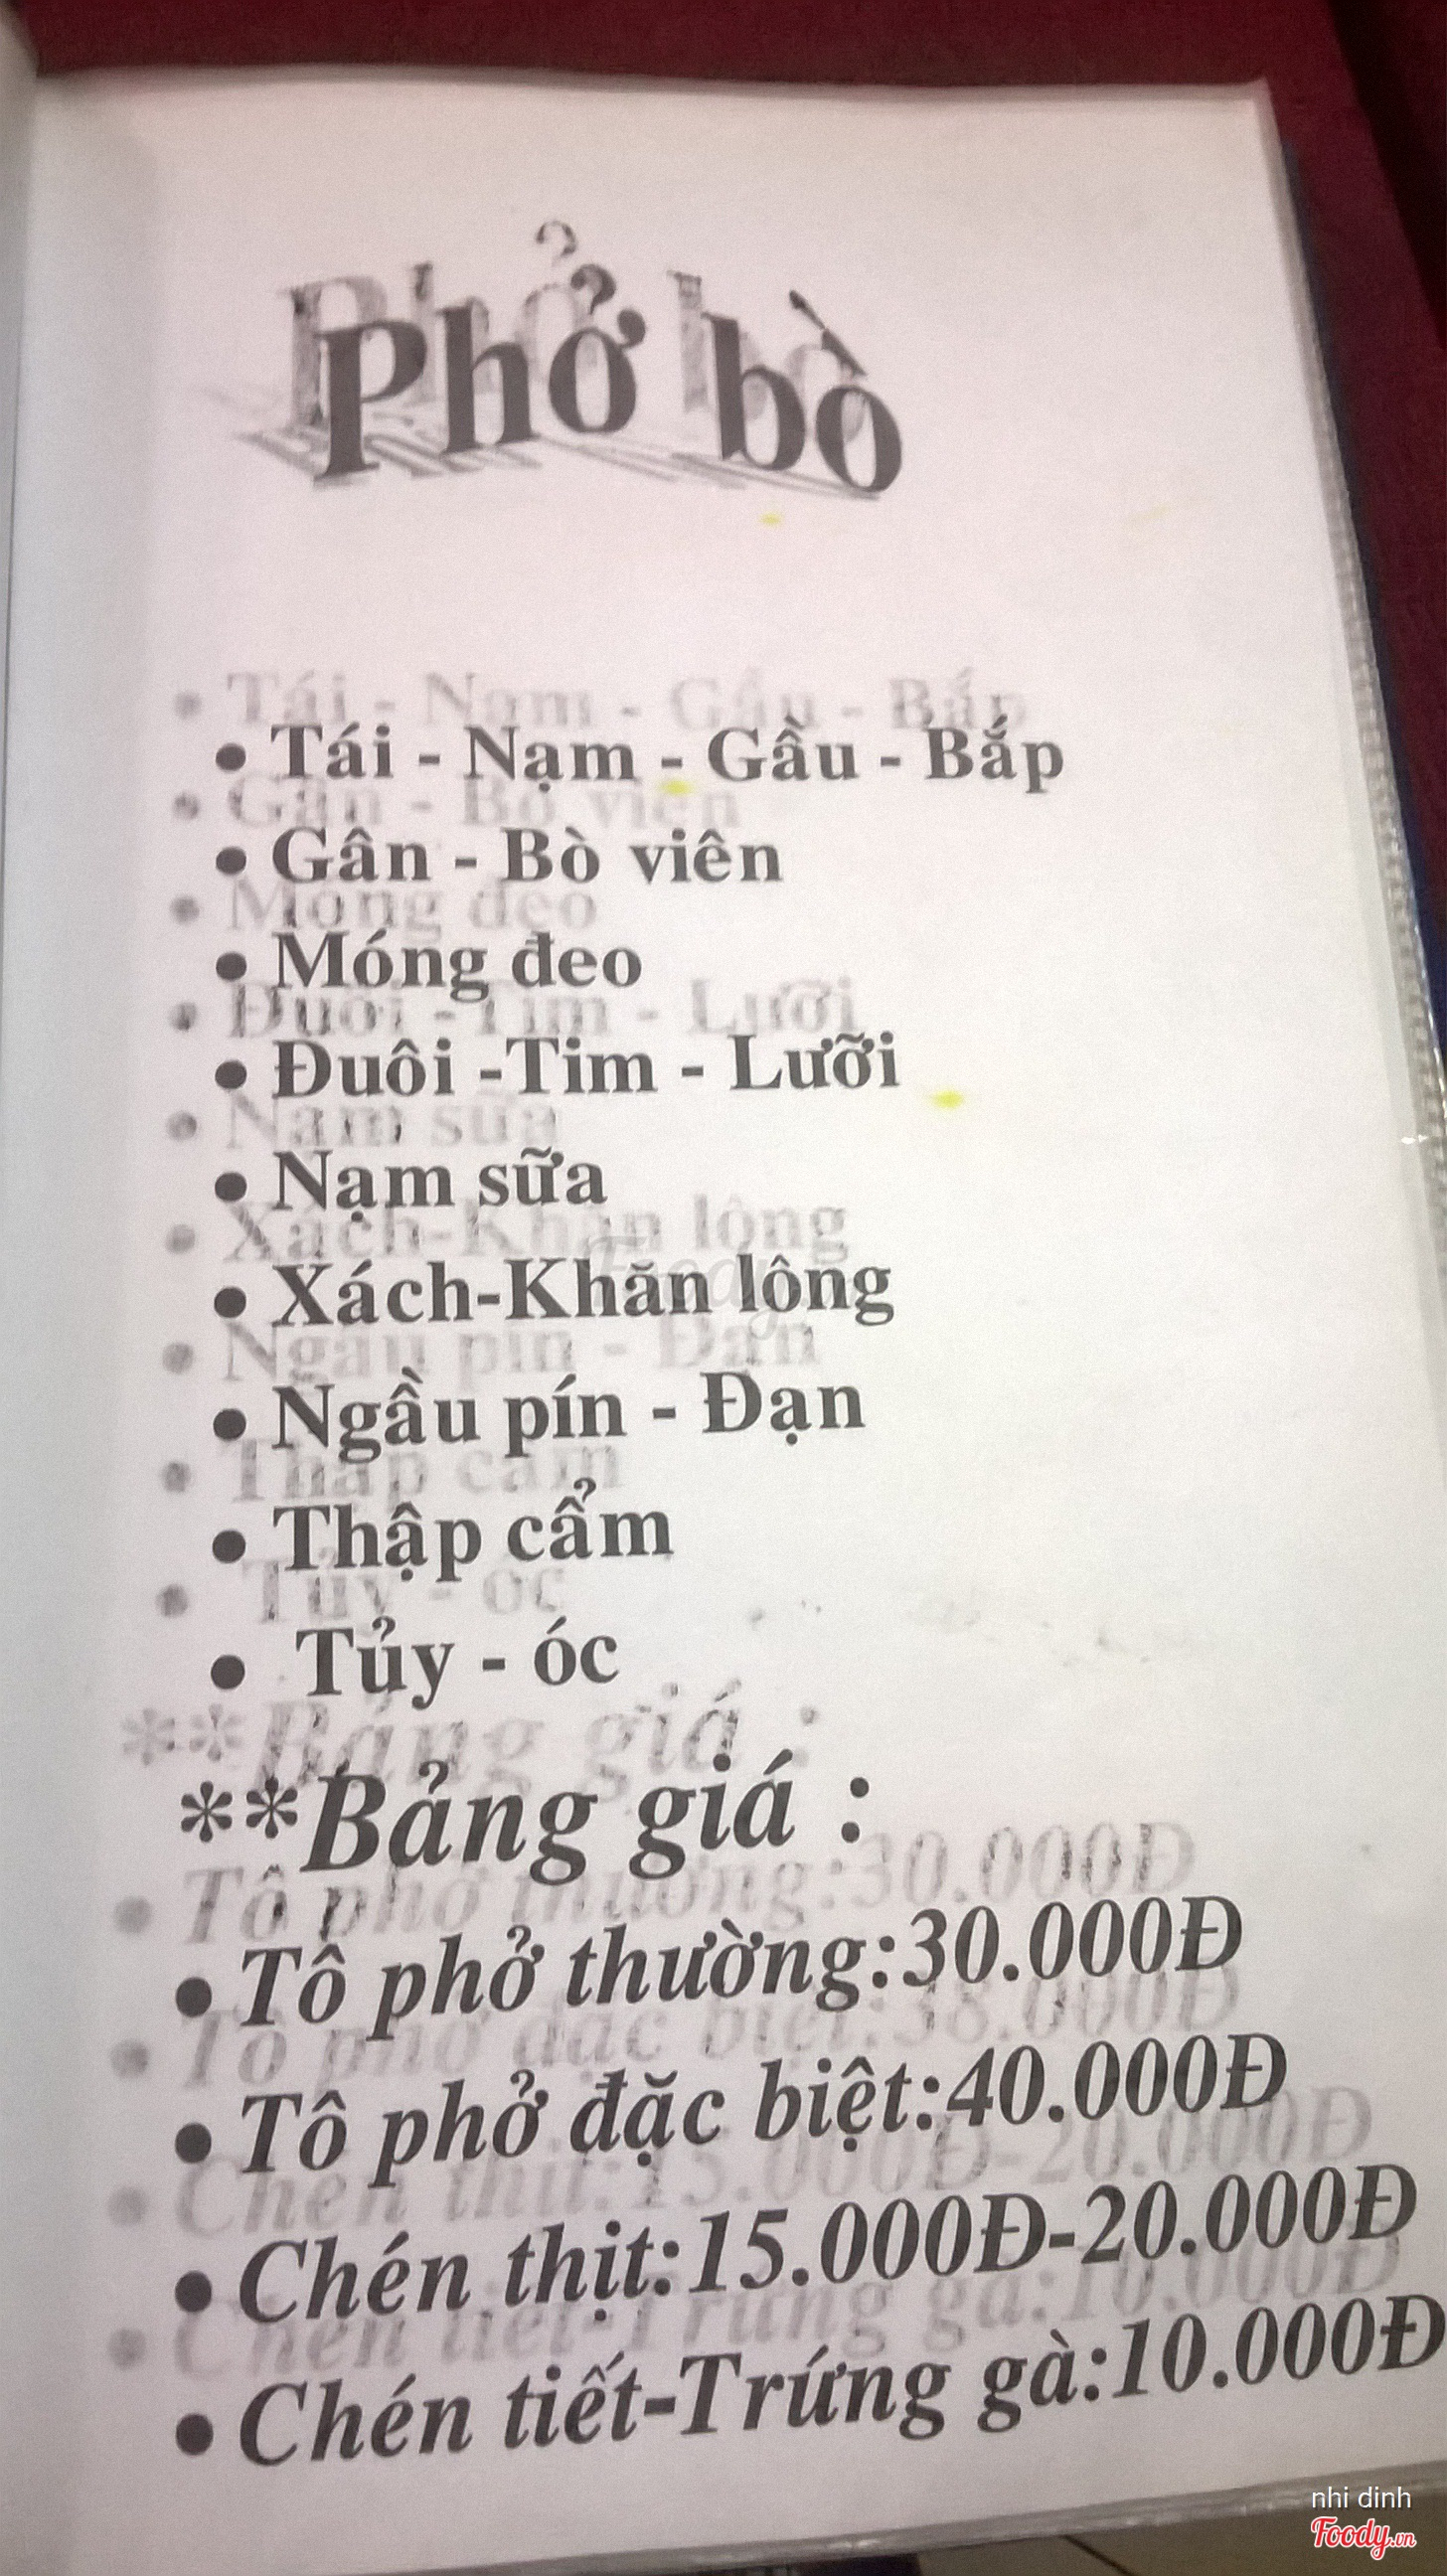 Phở bò
• Tái - Nạm - Gầu - Bắp
• Gân - Bò viên
• Móng đeo
• Đuôi -Tim - Lưỡi
• Nạm sữa
• Xách-Khăn lông
• Ngầu pín - Đạn
• Thập cẩm
• Tủy - óc
**Bảng giá :
• Tô phở thường:30.000Đ
• Tô phở đặc biệt:40.000Đ
• Chén thịt:15.000Đ-20.000Đ
• Chén tiết-Trứng gà:10.000Đ
nhi dinh
Foody.vn